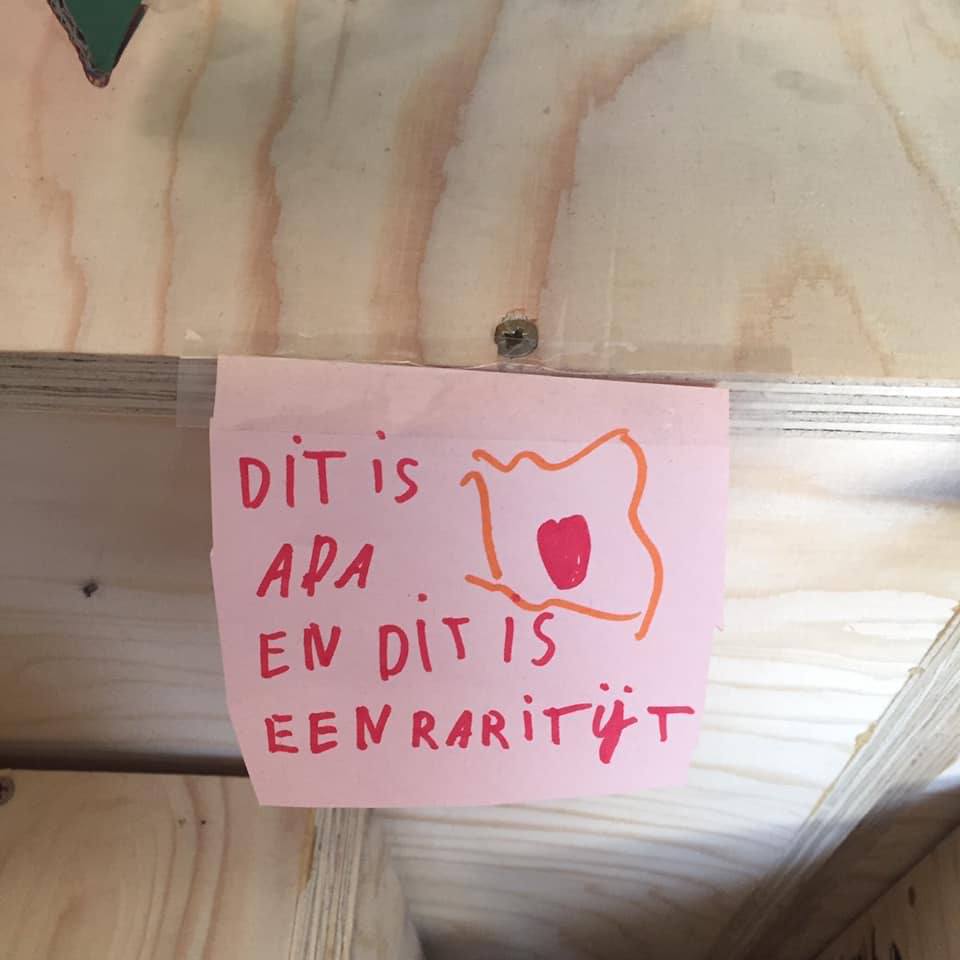 DIT IS
APA
EN DIT IS
EEN RARITIJT